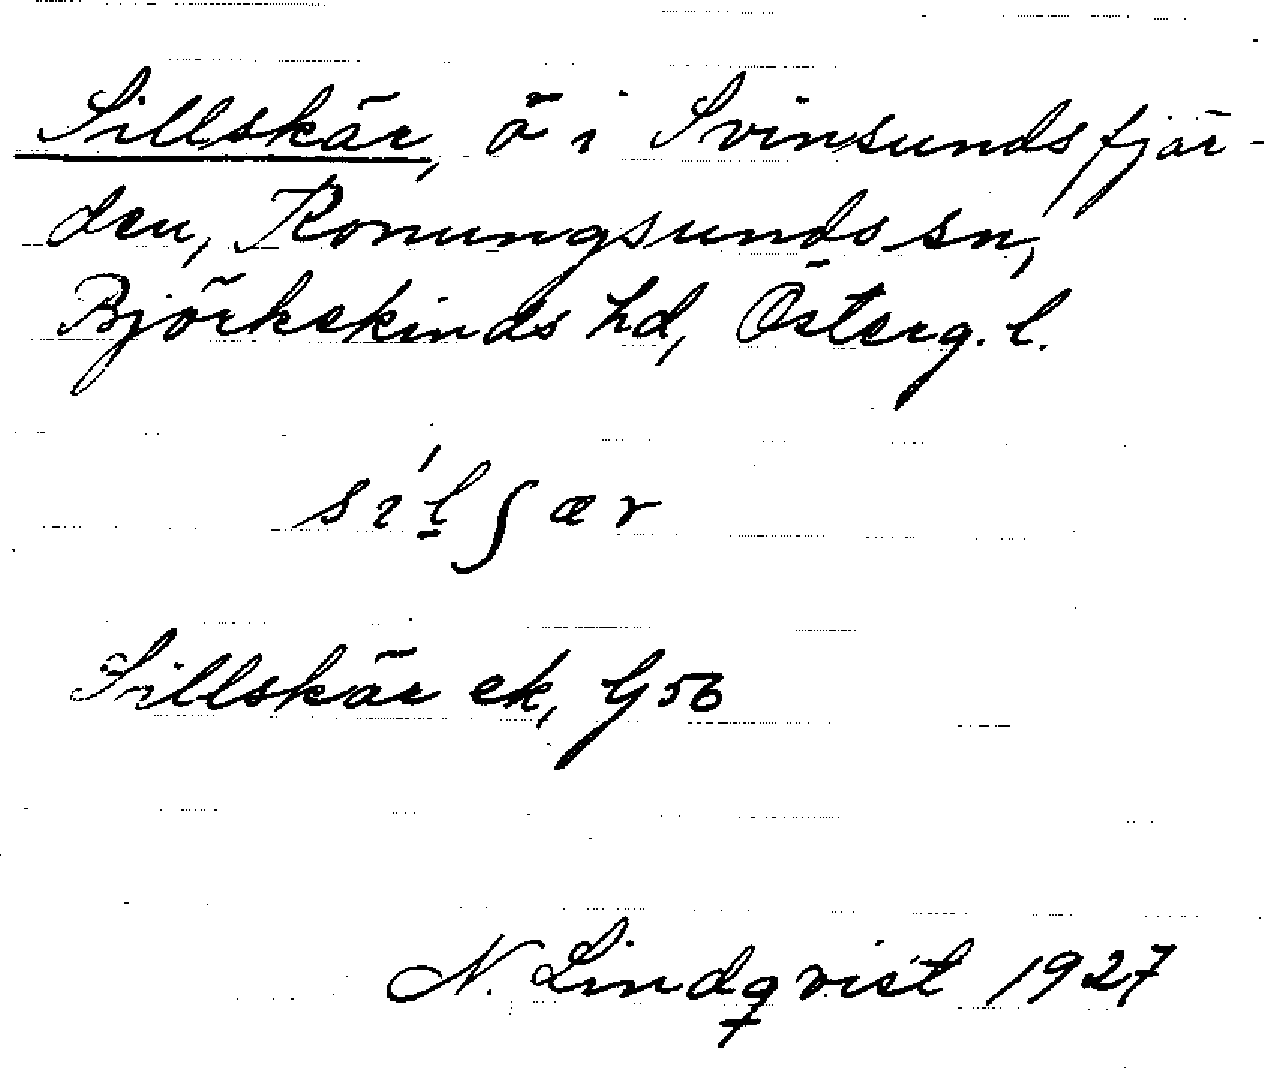 Sillskär, ö i Svinsundsfjär-
den, Konungsunds sn,
Björkekinds hd, Österg. l.
sı́l̠ʃær
Sillskär ek, G 56
N. Lindqvist 1927